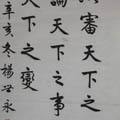 以審天下
論天下之事
天下之變
辛亥冬楊世永